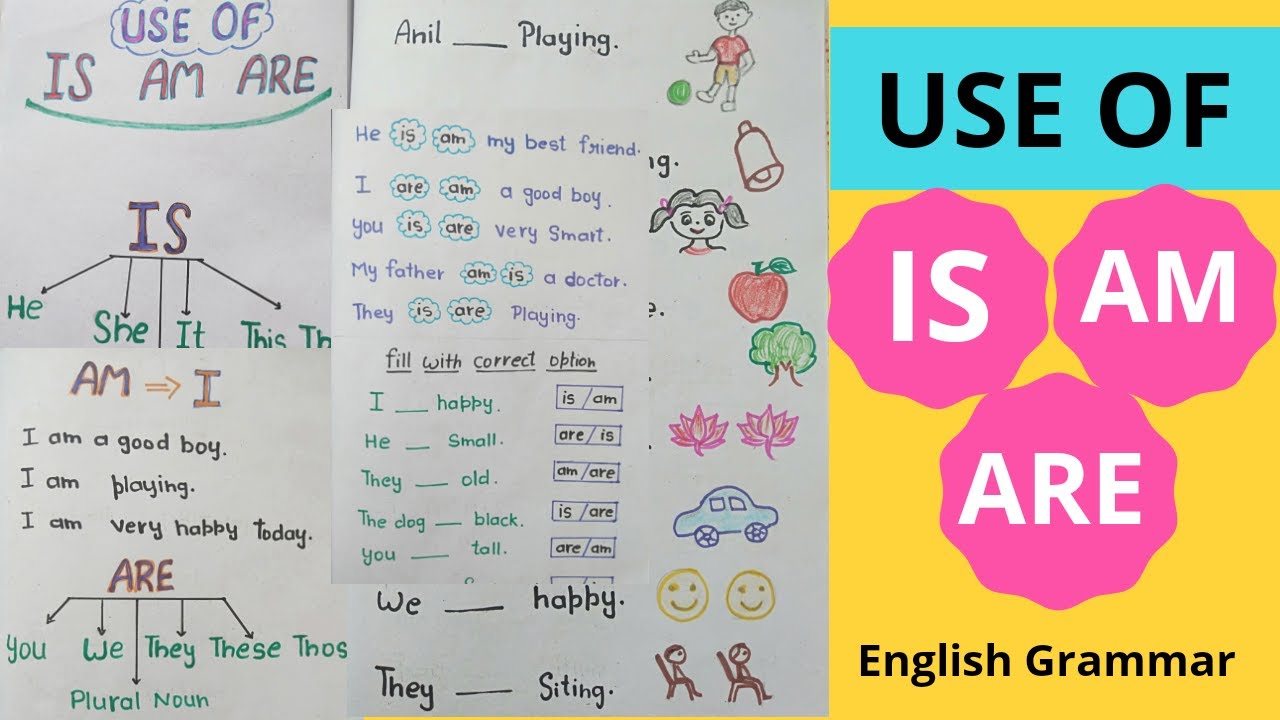 USE OF
IS AM ARE
IS
He
She
It
This Th
AM ⇒ I
I am a good boy.
I am playing.
I am very happy today.
ARE
You We They These Thos
Plural Noun
Anil ___ Playing.
He is am my best friend.
I are am a good boy.
you is are very Smart.
My father am is a doctor.
They is are Playing.
fill with correct option
I ___ happy. is /am
He __ Small. are/is
They ___ old. am/are
The dog __ black. is /are
you ___ tall. are/am
ng.
e.
We ___ happy.
They ___ Siting.
USE OF
IS
AM
ARE
English Grammar